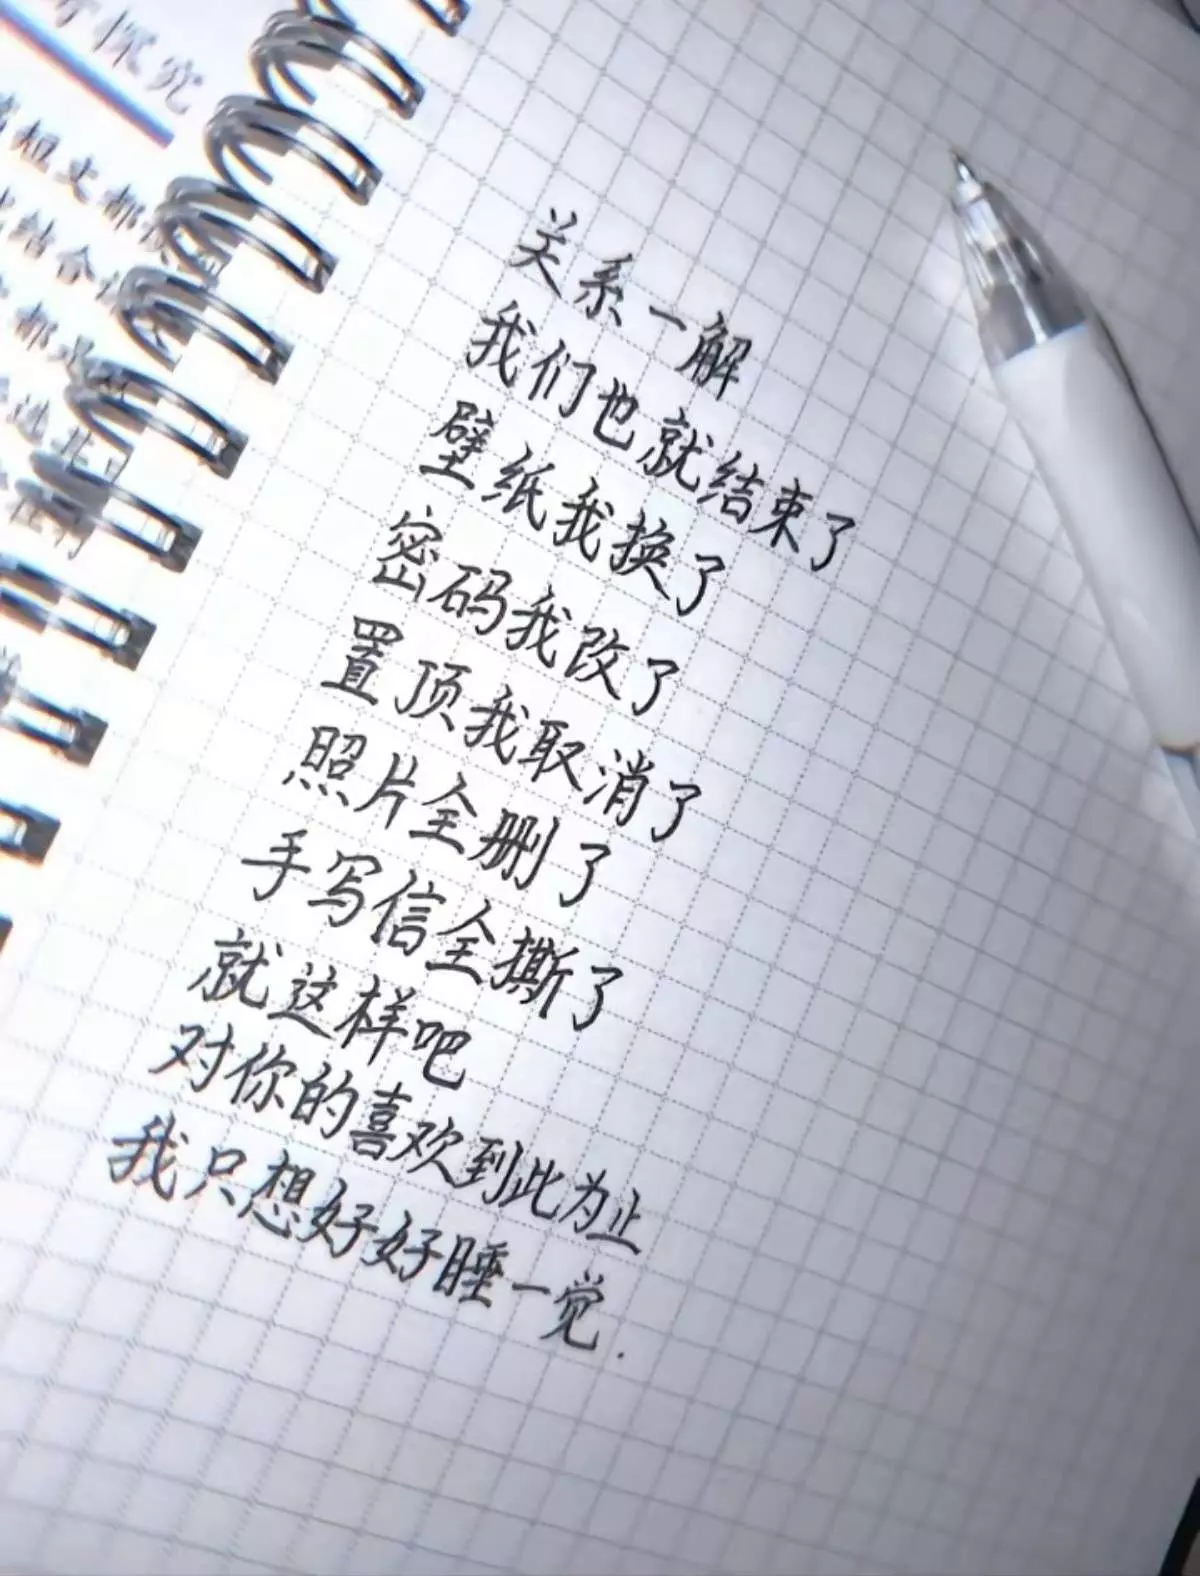 探究
关系一解
我们也就结束了
壁纸我换了
密码我改了
置顶我取消了
照片全删了
手写信全撕了
就这样吧
对你的喜欢到此为止
我只想好好睡一觉.